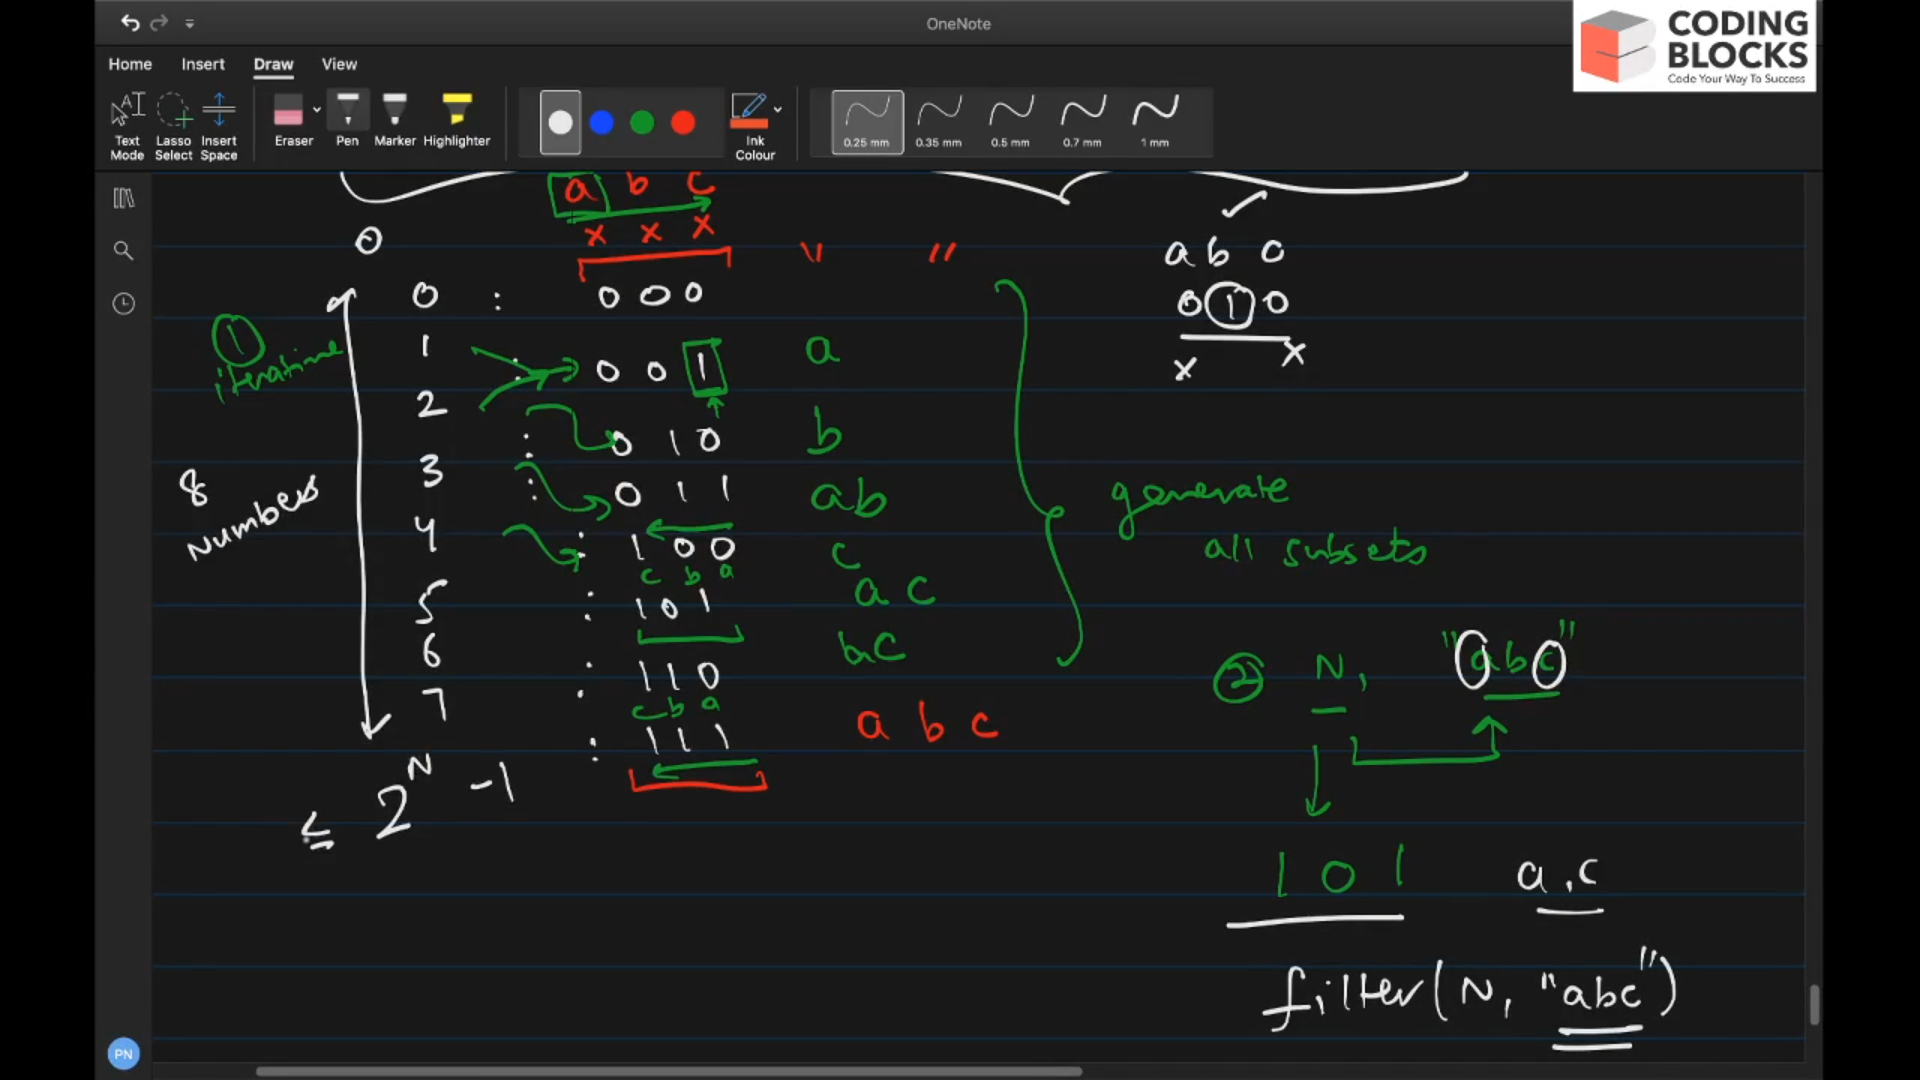 OneNote
CODING
BLOCKS
Code Your Way To Success
Home Insert Draw View
Text Mode
Lasso Select
Insert Space
Eraser
Pen
Marker
Highlighter
Ink Colour
0.25 mm
0.35 mm
0.5 mm
0.7 mm
1 mm
a b c
x x x " "
0
0 : 0 0 0
1 : 0 0 1 a
2 : 0 1 0 b
3 : 0 1 1 ab
4 : 1 0 0 c
c b a
5 : 1 0 1 a c
6 : 1 1 0 bc
c b a
7 : 1 1 1 a b c
≤ 2^N -1
1
iterative
8
Numbers
a b c
0 1 0
x x
generate
all subsets
2 N, "abc"
1 0 1 a,c
filter(N, "abc")
PN